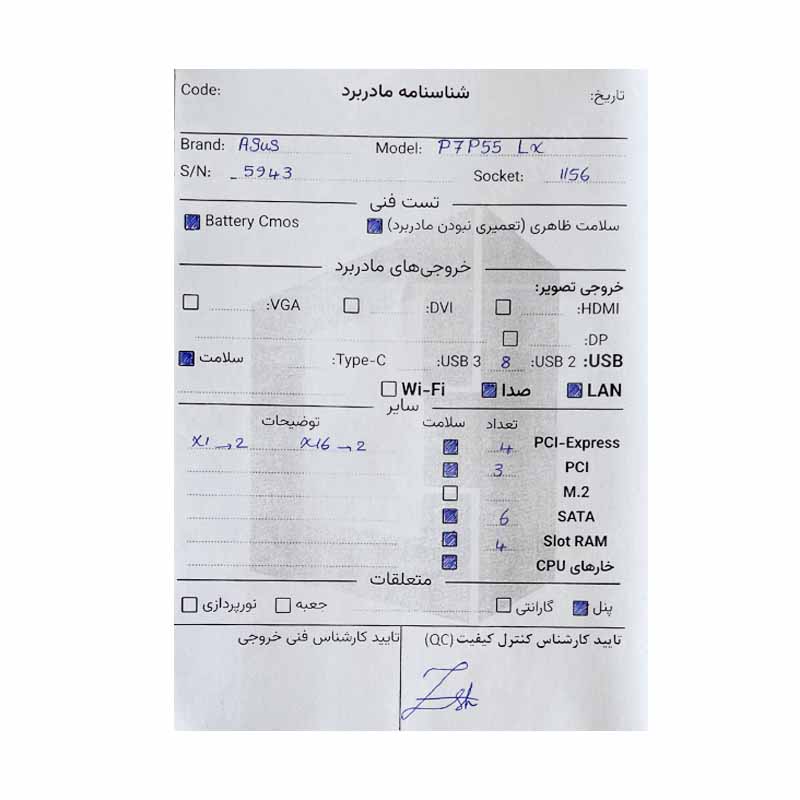 شناسنامه مادربرد
Code: تاریخ:
Brand: ASUS Model: P7P55 LX
S/N: 5943 Socket: 1156
تست فنی
سلامت ظاهری (تعمیری نبودن مادربرد) Battery Cmos
خروجی‌های مادربرد
خروجی تصویر:
HDMI: DVI: VGA:
DP:
USB: USB 2: 8 USB 3: Type-C: سلامت
LAN صدا Wi-Fi
سایر
تعداد سلامت توضیحات
PCI-Express 4 X16 → 2 X1 → 2
PCI 3
M.2
SATA 6
Slot RAM 4
خارهای CPU
متعلقات
پنل گارانتی جعبه نورپردازی
تایید کارشناس کنترل کیفیت (QC) تایید کارشناس فنی خروجی